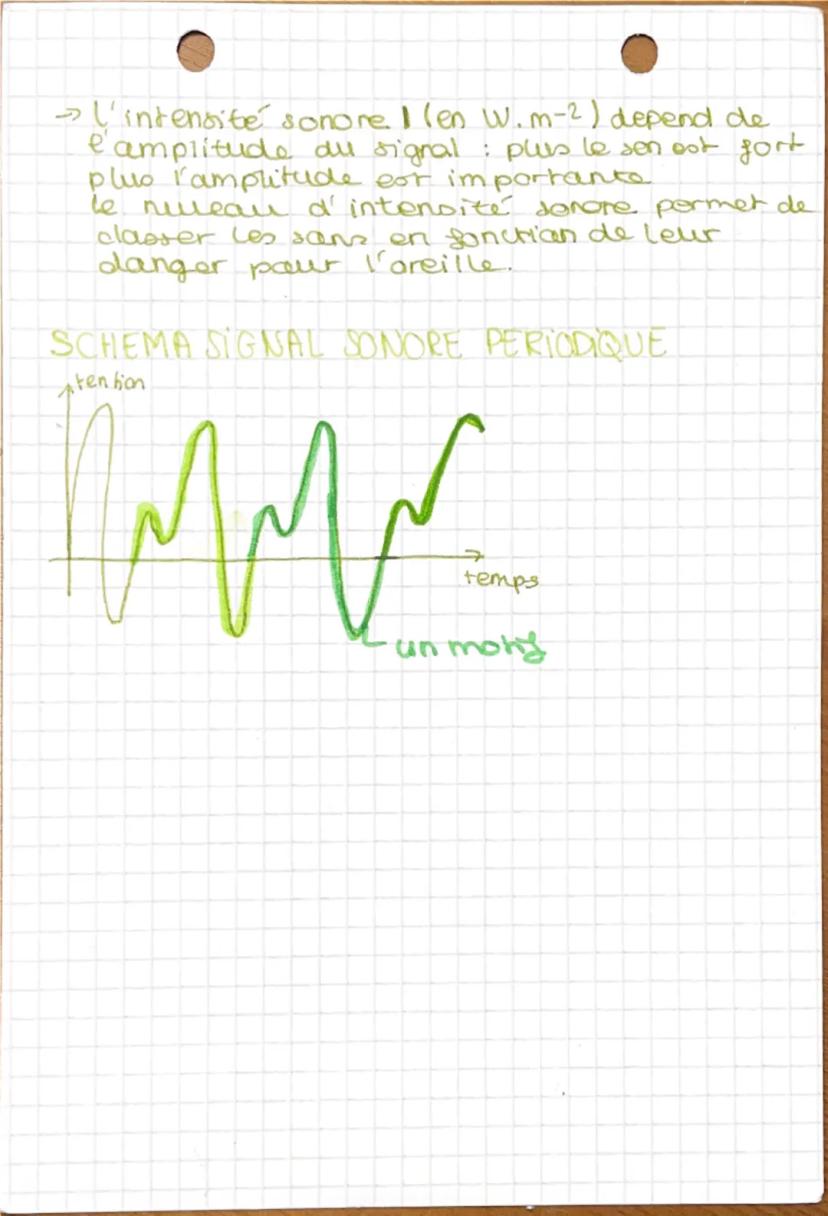 → L'intensité sonore I (en W.m-2) depend de
l'amplitude du signal : plus le son est fort
plus l'amplitude est importante
Le niveau d'intensité sonore permet de
classer les sons en fonction de leur
danger pour l'oreille.
SCHEMA SIGNAL SONORE PERIODIQUE
tention
temps
un motif